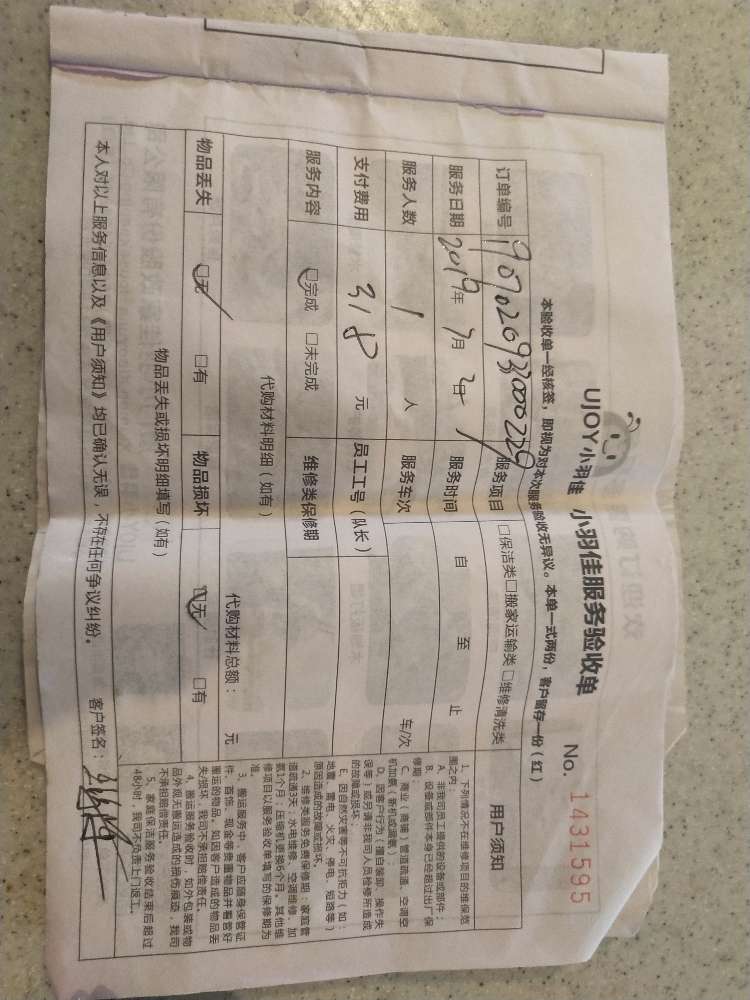 UJOY小羽佳 小羽佳服务验收单
No. 1431595
本验收单一经核签，即视为对本次服务验收无异议。本单一式两份，客户留存一份（红）
订单编号 服务项目 □保洁类□搬家运输类□维修清洗类
服务日期 2019年 7月 日 服务时间 自 至 止
服务人数 1 人 服务车次 车/次
支付费用 318 元 员工工号（队长）
服务内容 □完成 □未完成 维修类保修期
代购材料明细（如有） 代购材料总额： 元
物品丢失 □无 □有 物品损坏 □无 □有
物品丢失或损坏明细填写（如有）
本人对以上服务信息以及《用户须知》均已确认无误，不存在任何争议纠纷。 客户签名：
用户须知
1、下列情况不在维修项目的维保范
围之内：
A、非我司员工提供的设备或部件；
B、设备或部件本身已经超过出厂保
修期；
C、商业（商铺）管道疏通、空调空
机加氟（新机或漏氟）；
D、因客户行为（擅自装卸、操作失
误等）或另请非我司人员检修所造成
的故障或损坏；
E、因自然灾害等不可抗拒力（如：
地震、雷击、火灾、停电、短路等）
原因造成的故障或损坏。
2、维修类服务免费保修期：家庭管
道疏通5天；水电维修、空调维修、加
氨1个月；压缩机更换6个月。其他维
修项目以服务验收单填写的保修期为
准。
3、搬运服务中，客户应随身保管证
件、首饰、现金等贵重物品并看管好
搬运的物品，如因客户造成的物品丢
失/损坏，我司不承担赔偿责任。
4、搬运服务验收时，如外包装或物
品外观无搬运造成的损伤痕迹，我司
不承担赔偿责任。
5、家庭保洁服务验收结束后超过
48小时，我司不负责上门返工。